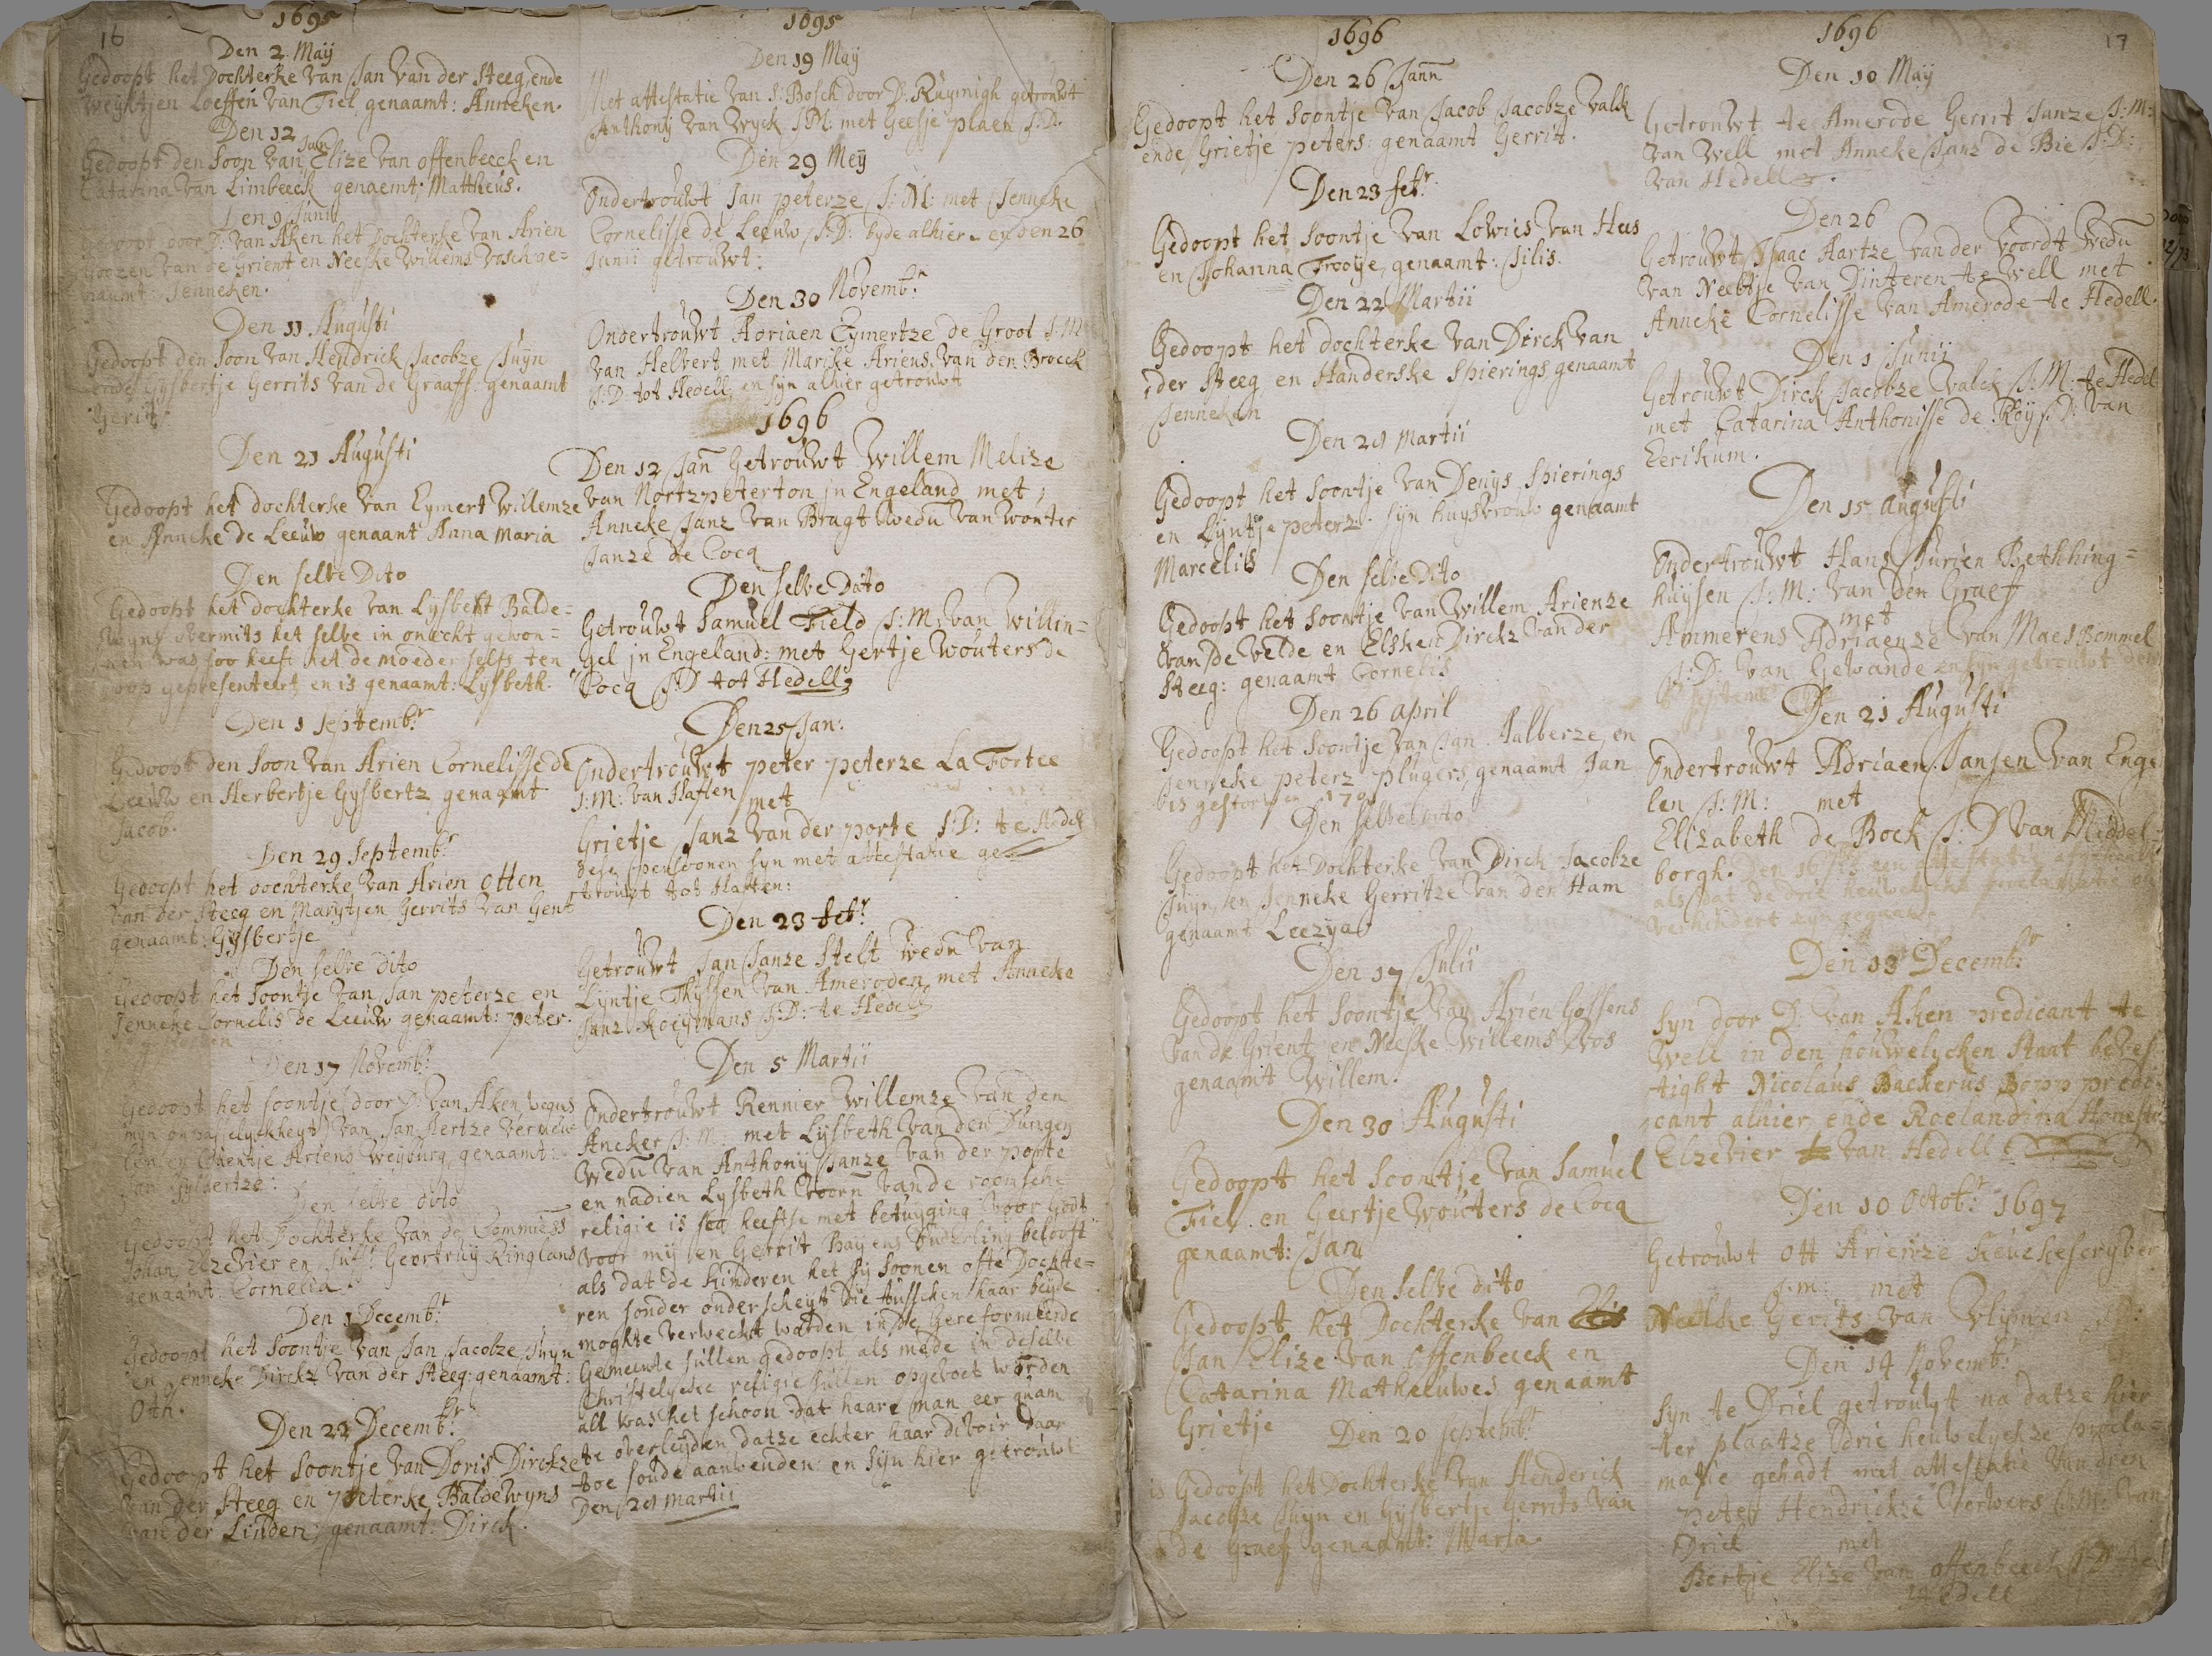 16
1695
Den 2 Maÿ
Gedoopt het Dochterke van Jan van der Steeg, ende
Weijntjen Loeffen van Tiel genaamt: Anneken.
Den 12 Juny
Gedoopt den Soon van Elize van offenbeeck en
Catarina van Limbeeck genaemt: Mattheus.
Den 9 Junii
Gedoopt door D: van Aken het Dochterke van Arien
Goozen van de Grient, en Neeske Willems Vosch ge=
naamt: Jenneken.
Den 11 Augusti
Gedoopt den Soon van Hendrick Jacobze Suÿn
ende Gijsbertje Gerrits van de Graaff: genaamt
Gerit
Den 21 Augusti
Gedoopt het dochterke van Eymert Willemze
en Anneke de Leeuw genaamt Anna Maria
Den selve Dito
Gedoopt het dochterke van Lysbeht Balde=
wyns vermits het selve in onecht gewon=
nen was soo heeft het de moeder selfs ten
doop gepresenteert en is genaamt: Lysbeth.
Den 1 Septembr
Gedoopt den Soon van Arien Cornelisse de
Leeuw en Herbertje Gysbertz genaamt
Jacob.
Den 29 Septembr
Gedoopt het dochterke van Arien Otten
van der Steeg en Marytjen Gerrits van Gent
genaamt: Gysbertje
Den selve dito
Gedoopt het Soontje van Jan peterze en
Jenneke Cornelis de Leeuw genaamt: peter.
Den 17 Novembr
Gedoopt het soontje (door D: van Aken, wegens
myn onpasselyckheyt) van Jan Aertze Vermeu
len en Ariens Weyburg, genaamt:
Jan Gysbertze:
Den selve dito
Gedoopt het Dochterke van de Commies
Johan Elzevier en Juffr Geertruy Ringland
genaamt: Cornelia.
Den 1 Decembr
Gedoopt het Soontje van Jan Jacobze Suyn
en Jenneke Dirckz van der Steeg: genaamt:
Oth.
Den 22 Decembr
Gedoopt het Soontje van Doris Dirckze
van der Steeg en peterke Baldewyns
van der Linden, genaamt: Dirck.
1695
Den 19 May
Met attestatie van S: Bosch door D: Ruymigh getrouwt
Anthony van Wyck J.M. met Geesje plaen J:D.
Den 29 Meÿ
Ondertrouwt Jan peterze J: M: met Jenneke
Cornelisse de Leeuw J:D: byde alhier. en den 26
Junii getrouwt:
Den 30 Novembr
Ondertrouwt Adriaen Eymertze de Groot J:M
van Helvert met Marike Ariens van den Broeck
J:D: tot Hedell, en syn alhier getrouwt
1696
Den 12 Jan Getrouwt Willem Melize
van Nortzpeterton in Engeland met,
Anneke Janz van Bragt Wedu van Wouter
Janze de Cocq
Den selve Dito
Getrouwt Samuel Field J:M: van Willin=
gel in Engeland: met Gertje Wouters de
Cocq J:D tot Hedell
Den 25 Jan:
Ondertrouwt peter peterze La Fortee
J:M: van Haften
met
Grietje Janz van der porte J:D: te Hedel
dese persoonen syn met attestatie ge=
trouwt tot Haften:
Den 23 febr
Getrouwt Jan Janze Stelt Wedu van
Lyntje Thyssen van Ameroden met Anneke
Janz Kooymans J:D: te Hedell
Den 5 Martii
Ondertrouwt Rennier Willemze van den
Ancker J: M: met Lysbeth van den Dungen
Wedu van Anthony Janze van der porte
en nadien Lysbeth Voorn van de roomsche
religie is soo heeftse met betuyging voor Godt
voor my en Gerrit Bayens ouderling belooft
als dat de kinderen het sy Soonen ofte Dochte=
ren sonder onderscheyt die tusschen haar beyde
moghte verweckt warden in de Gereformeerde
Gemeente sullen gedoopt als mede in deselve
Christelycke religie sullen opgevoet worden
all was het schoon dat haare man eer quam
te overleyden datze echter haar divoir daar
toe soude aanwenden en syn hier getrouwt
Den 21 Martii
1696
Den 26 Jann
Gedoopt het Soontje van Jacob Jacobze Valk
ende Grietje peters: genaamt Gerrit.
Den 23 febr
Gedoopt het Soontje van Lowies van Hees
en Johanna Trooye, genaamt: Jilis.
Den 22 Martii
Gedoopt het dochterke van Dirck van
der Steeg en Handerske Spierings genaamt
Jenneken
Den 21 Martii
Gedoopt het Soontje van Denys Spierings
en Lyntje peterz. syn huysvrouw genaamt
Marcelis
Den selve Dito
Gedoopt het Soontje van Willem Arienze
van de Velde en Elsken Dirckz van der
Steeg: genaamt Cornelis
Den 26 april
Gedoopt het Soontje van Jan Aalberze, en
Jenneke peterz plugers, genaamt Jan
is gestorven
Den selve dito
Gedoopt het Dochterke van Dirck Jacobze
Suyn, en Jenneke Gerritze van der Ham
genaamt Leezya
Den 17 Julii
Gedoopt het Soontje van Arien Gossens
van de Grient en Neeske Willems Vos
genaamt Willem.
Den 30 Augusti
Gedoopt het Soontje van Samuel
Fiel en Geertje Wouters de Cocq
genaamt: Jan
Den selve dito
Gedoopt het Dochterke van
Jan Elize van Offenbeeck en
Catarina Matheuwes genaamt
Grietje
Den 20 septembr
Gedoopt het Dochterke van Henderick
Jacobze Suyn en Gysbertje Gerrits van
de Graef genaamt: Maria.
1696
17
Den 10 May
Getrouwt te Amerode Gerrit Janze J:M:
van Well met Anneke Janz de Bie J:D:
van Hedell.
Den 26
Getrouwt Isaac Aartze van der Voordt Wedu
van Neeltje van Dinteren te Well met
Anneke Cornelisse van Amerode te Hedell.
Den 1 Junij
Getrouwt Dirck Jacobze Valck J:M: te Hedel
met Catarina Anthonisse de Roy J:D: van
Eerikum.
Den 15 Augusti
Ondertrouwt Hans Jurien Bethhing=
huysen J:M: van den Graeff
met
Ammerens Adriaenze van Maes Bommel
J:D: van Gewande en syn getrouwt den
Septembr
Den 21 Augusti
Ondertrouwt Adriaen Jansen van Enge
len J:M: met
Elizabeth de Bock J:D van Middel=
borgh. Den 16
als dat de drie houwelyckse proclamatie on
verhindert zyn gegaan.
Den 13 Decembr
Syn door D: van Aken predicant te
Well in den houwelycken Staat beves
tight Nicolaus Backerus Bopp predi=
cant alhier, ende Roelandina Honesta
Elzevier van Hedell
Den 10 Octobr 1697
Getrouwt Ott Arienze Keuckeschryver
J:m: met
Neelke Gerits van Vlymen J:D:
Den 14 Novembr
Syn te Driel getrouwt na datze hier
ter plaatze drie houwelyckze procla=
matie gehadt met attestatie van dien
peter Hendrickze Verwers J:M: van
Driel met
Bertje Elize van offenbeeck J:D te
Hedell